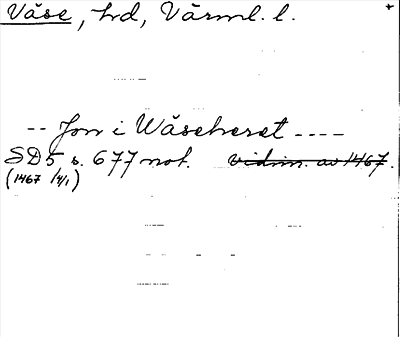 Väse, hd, Värml. l.
-- Jon i Wäseheret ----
SD5 s. 677 not. vidim. av 1467.
(1467 4/1)